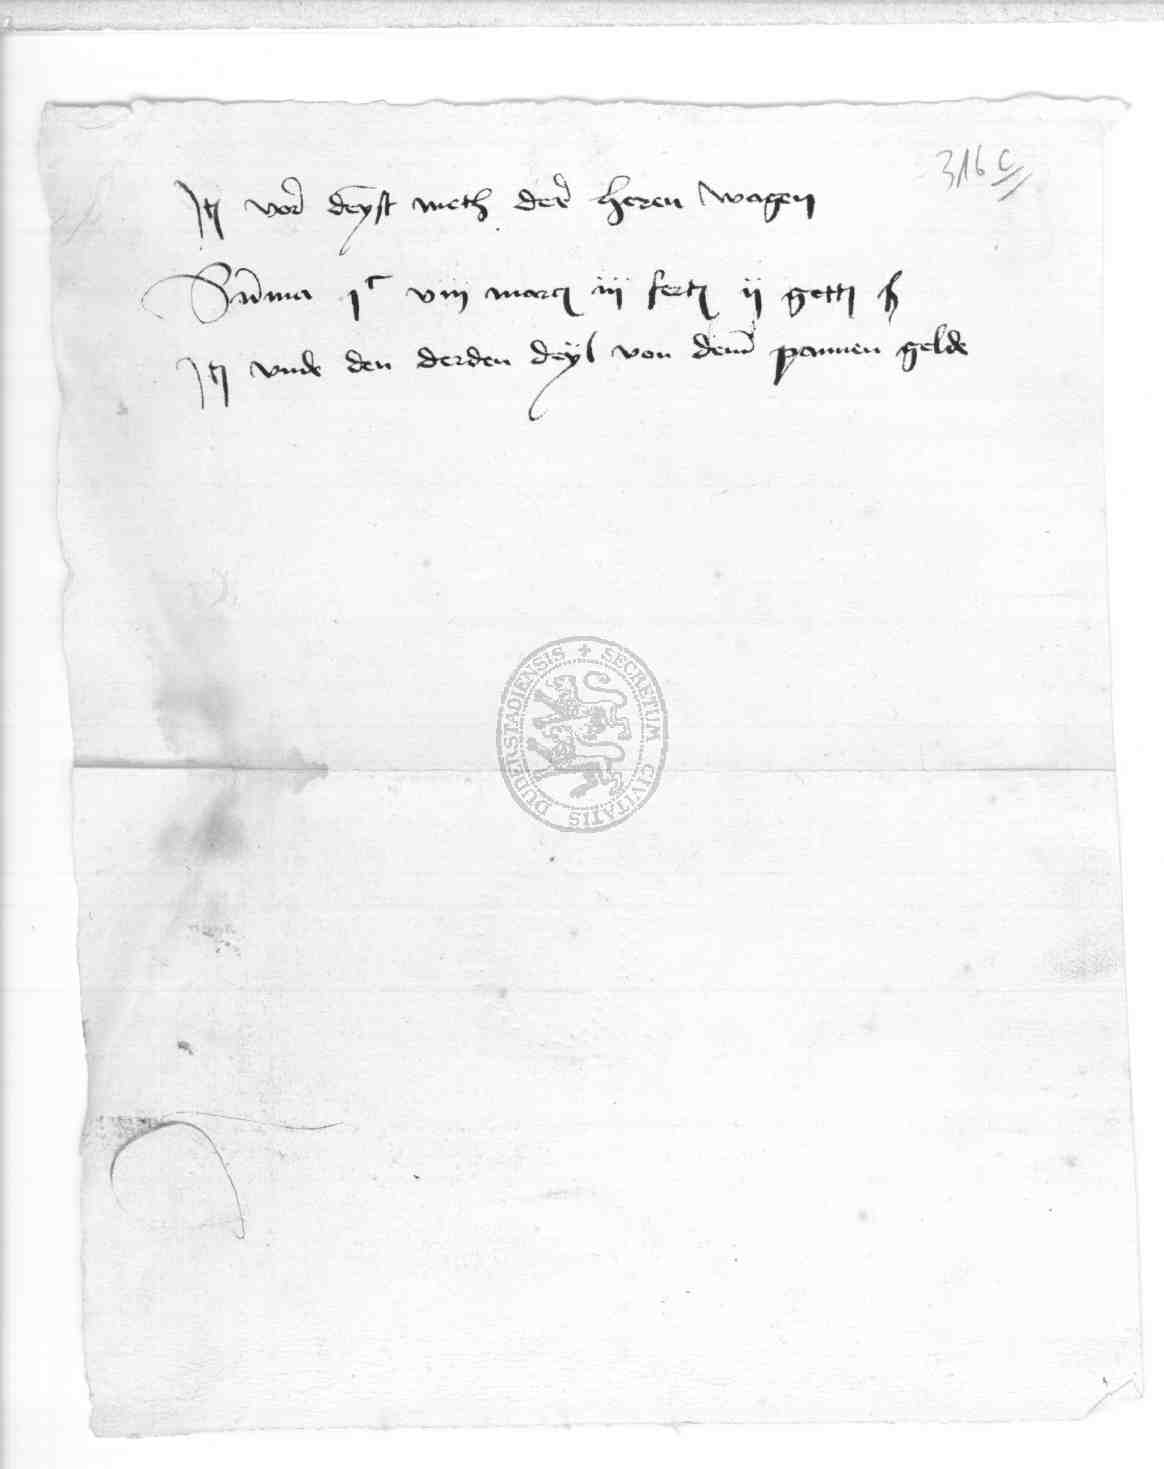 316 c
Itꝫ vor deynst meth der heren wagen
Sum̃a jᶜ viij marc iij fert ij gott ₰
Itꝫ vnde den derden deyl von dem pannen gelde
SECRETUM CIVITATIS DUDERSTADIENSIS